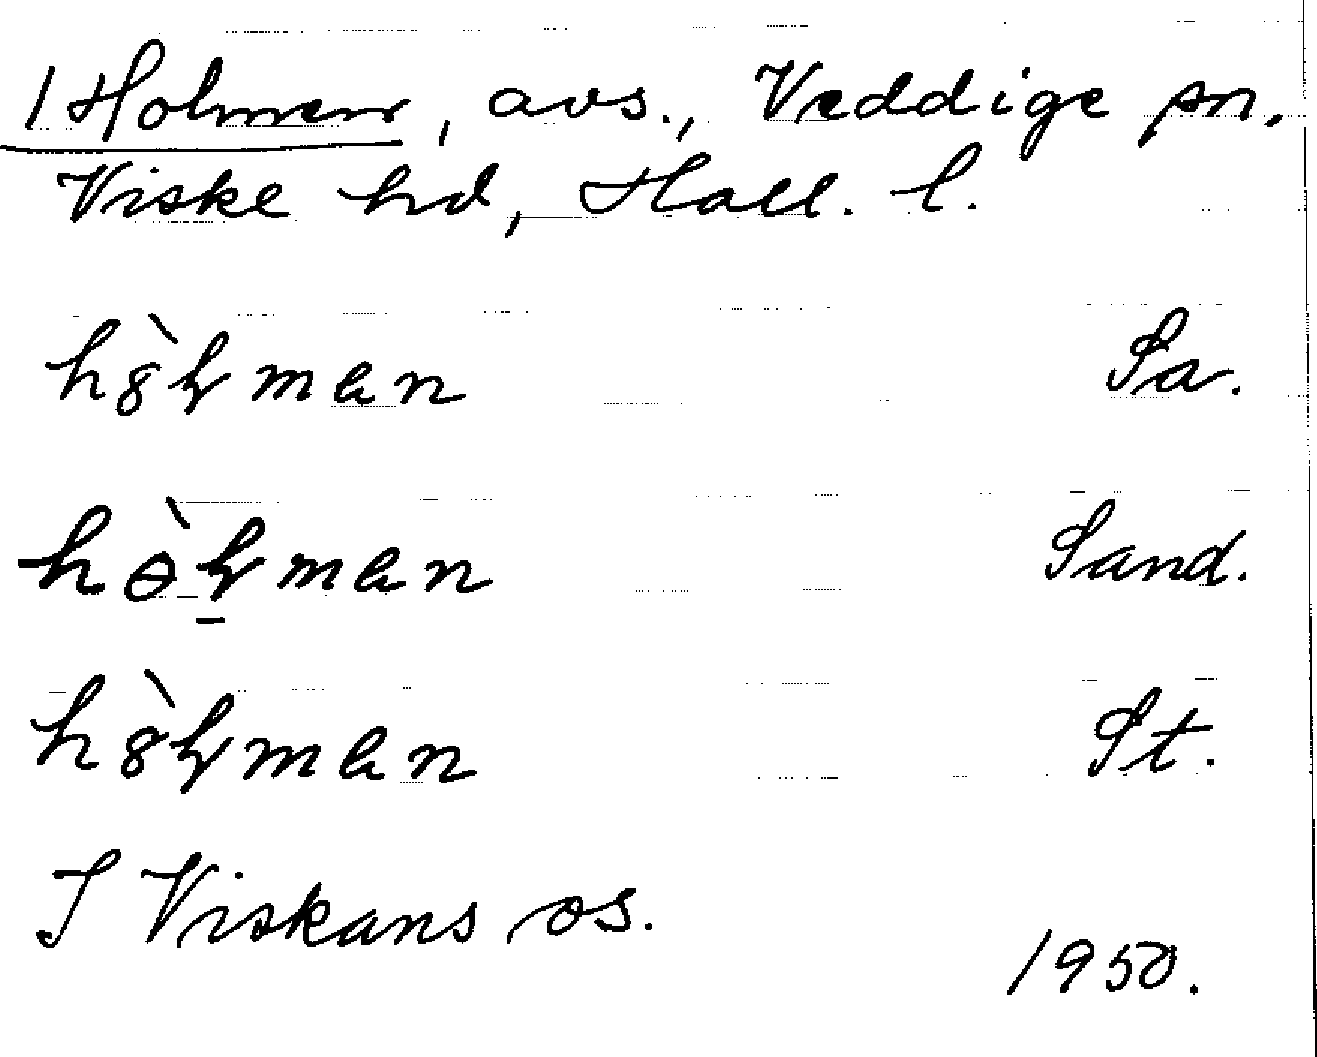 1 Holmen, avs., Veddige sn,
Viske hd, Hall. l.
h8̀ɫman Sa.
hɵ̀ɫ̱man Sand.
h8̀ɫman St.
I Viskans os.
1950.